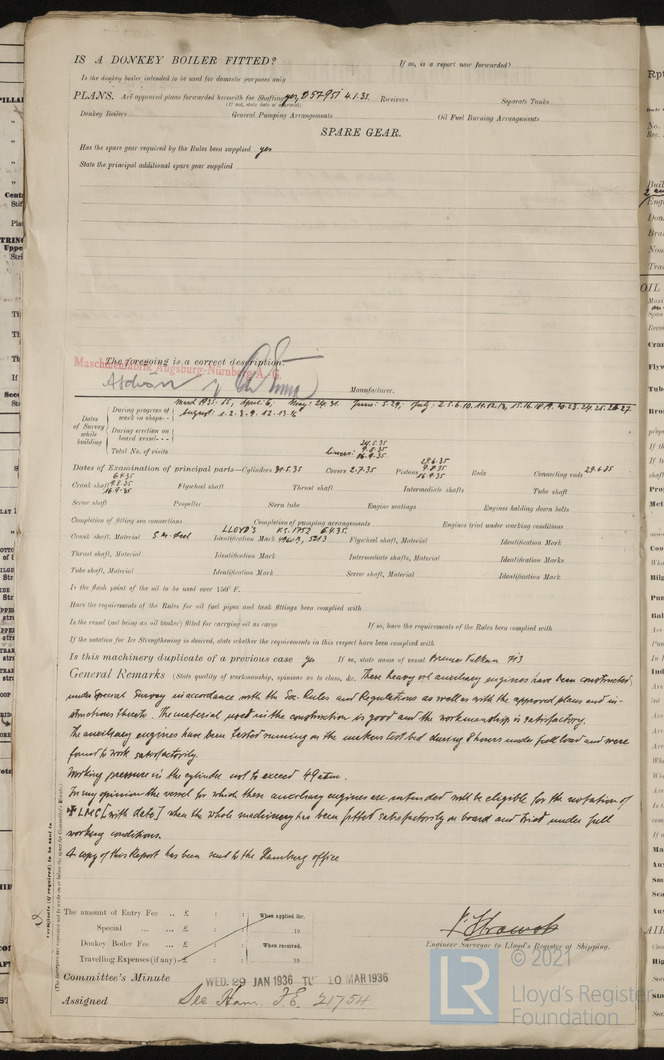 IS A DONKEY BOILER FITTED? If so, is a report now forwarded?
Is the donkey boiler intended to be used for domestic purposes only
PLANS. Are approved plans forwarded herewith for Shafting yes, 4.1.35. Receivers Separate Tanks
(If not, state date of approval)
Donkey Boilers General Pumping Arrangements Oil Fuel Burning Arrangements
SPARE GEAR.
Has the spare gear required by the Rules been supplied yes
State the principal additional spare gear supplied
The foregoing is a correct description.
Maschinenfabrik Augsburg-Nürnberg A.-G.
Manufacturer.
Dates of Survey while building
During progress of work in shops - - March 1935: 15, April: 6, May: 24.31. June: 5.29, July: 2.5.6.10.11.12.13, 15.16.18.19.20.23.24.25.26.27.
August: 1.2.3.9.12.13.16
During erection on board vessel - - -
Total No. of visits
Liners: 24.5.35 9.8.35 16.9.35
Dates of Examination of principal parts—Cylinders 31.5.35 Covers 2.7.35 Pistons 29.6.35 9.8.35 16.9.35 Rods Connecting rods 29.6.35
Crank shaft 6.4.35 9.8.35 16.9.35 Flywheel shaft Thrust shaft Intermediate shafts Tube shaft
Screw shaft Propeller Stern tube Engine seatings Engines holding down bolts
Completion of fitting sea connections Completion of pumping arrangements Engines tried under working conditions
Crank shaft, Material S.M. steel Identification Mark LLOYD'S 6.4.35. Flywheel shaft, Material Identification Mark
Thrust shaft, Material Identification Mark Intermediate shafts, Material Identification Marks
Tube shaft, Material Identification Mark Screw shaft, Material Identification Mark
Is the flash point of the oil to be used over 150° F.
Have the requirements of the Rules for oil fuel pipes and tank fittings been complied with
Is the vessel (not being an oil tanker) fitted for carrying oil as cargo If so, have the requirements of the Rules been complied with
If the notation for Ice Strengthening is desired, state whether the requirements in this respect have been complied with
Is this machinery duplicate of a previous case yes If so, state name of vessel Bremer Vulkan 713
General Remarks (State quality of workmanship, opinions as to class, &c. These heavy oil auxiliary engines have been constructed
under Special Survey in accordance with the Soc. Rules and Regulations as well as with the approved plans and in-
structions thereto. The material used in the construction is good and the workmanship is satisfactory.
The auxiliary engines have been tested running on the makers test bed during 8 hours under full load and were
found to work satisfactorily.
Working pressure in the cylinder not to exceed 49 atm.
In my opinion the vessel for which these auxiliary engines are intended will be eligible for the notation of
✠ LMC [with date] when the whole machinery has been fitted satisfactorily on board and tried under full
working conditions.
A copy of this Report has been sent to the Hamburg office
The amount of Entry Fee .. £ : : When applied for,
Special ... ... £ : : 19
Donkey Boiler Fee ... £ : : When received,
Travelling Expenses (if any) £ : : 19
Engineer Surveyor to Lloyd's Register of Shipping.
Committee's Minute WED. 29 JAN 1936 TUE 10 MAR 1936
Assigned See Ham. F.E. 21754
© 2021
LR
Lloyd's Register
Foundation